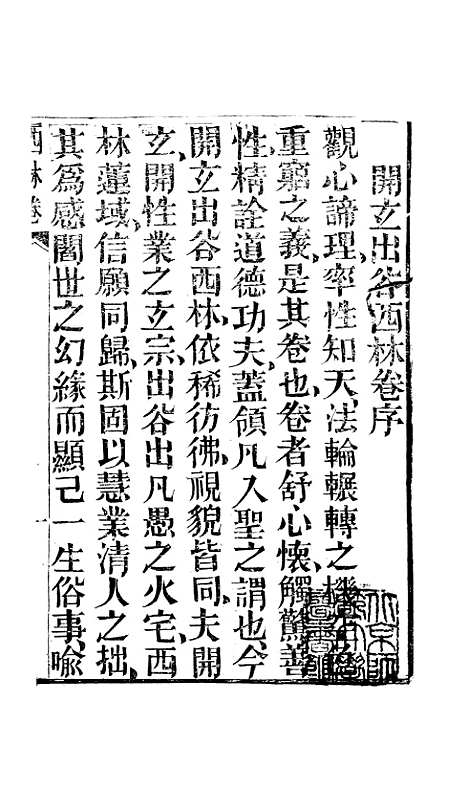 開玄出谷西林卷序
觀心諦理、率性知天、法輪輾轉之機
重窮之義、是其卷也、卷者舒心懷、觸驚善
性、精詮道德功夫、蓋領凡入聖之謂也、今
開玄出谷西林、依稀彷彿、視貌皆同、夫開
玄、開性業之玄宗、出谷出凡愚之火宅、西
林蓮域、信願同歸、斯固以慧業清人之拙、
其爲感閻世之幻緣而顯己一生俗事、喩
西林卷
一